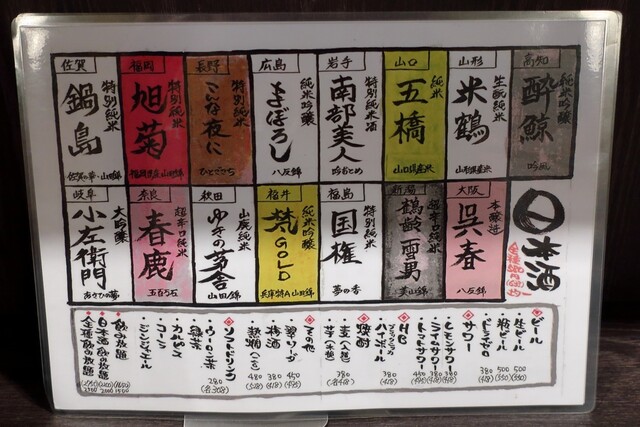 日本酒
高知
酔鯨
純米吟醸
吟風
山形
米鶴
生酛純米
山形県産米
山口
五橋
純米
山口県産米
岩手
南部美人
特別純米酒
吟おとめ
広島
まぼろし
純米吟醸
八反錦
長野
こんな夜に
特別純米
ひとごこち
福岡
旭菊
特別純米
佐賀
鍋島
特別純米
佐賀の華・山田錦
大阪
呉春
本醸造
八反錦
新潟
鶴齢 雪男
超辛口純米
美山錦
福島
国権
特別純米
夢の香
福井
梵GOLD
純米吟醸
兵庫特A山田錦
秋田
ゆきの芳舎
山廃純米
山田錦
奈良
春鹿
超辛口純米
五百万石
岐阜
小左衛門
大吟醸
あさひの夢
ビール
・生ビール 500
・瓶ビール 500
・ドライゼロ 380
サワー
・レモンサワー
・ライムサワー
・トマトサワー
HB
・ハイボール 380
焼酎
・麦
・芋
その他
・翠ソーダ 450
・梅酒 380
・熱燗 480
ソフトドリンク
・ウーロン茶 280
・緑茶
・カルピス
・コーラ
・ジンジャエール
飲み放題
・日本酒飲み放題
・全種飲み放題